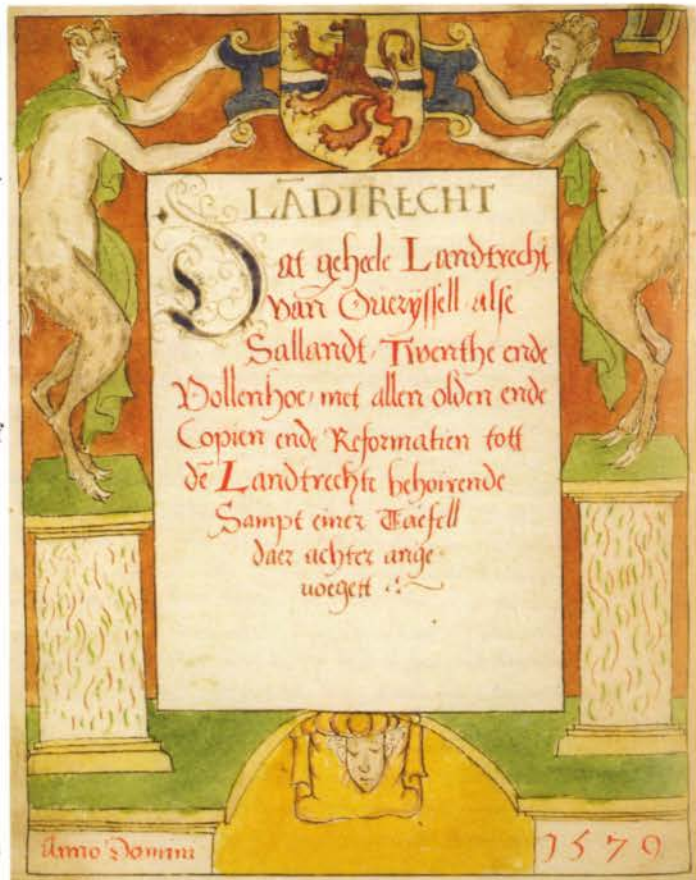 LĀDTRECHT
Dat geheele Landtrecht
van Overÿssell alse
Sallandt, Twenthe ende
Vollenhoe, met allen olden ende
Copien ende Reformatien tott
dē Landtrechte behoirende
Sampt einer Taefell
daer achter ange
voegett
Anno Domini 1570